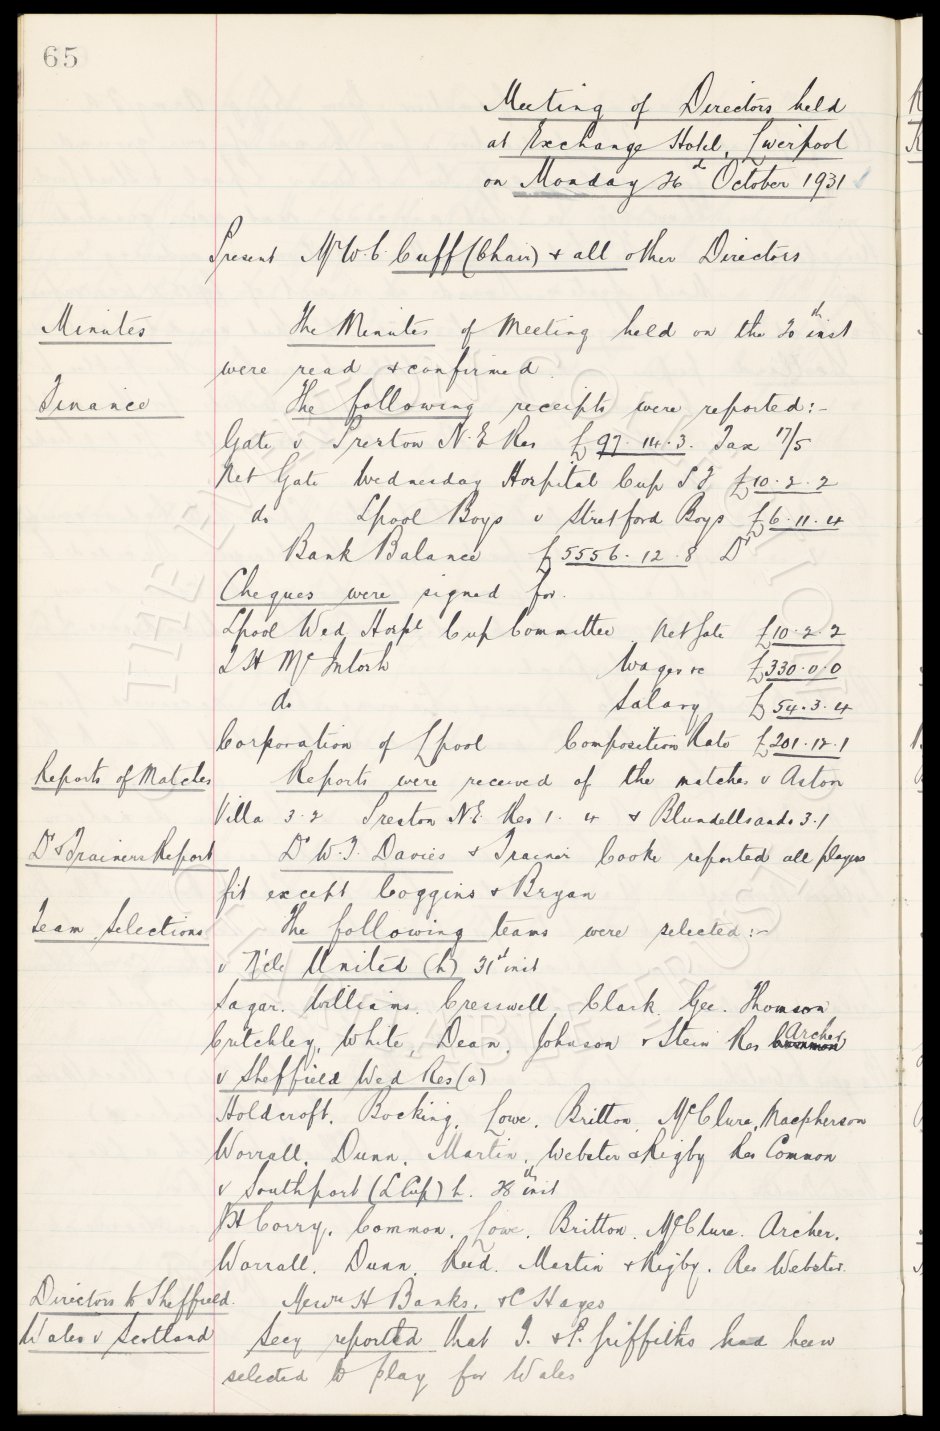 65
Meeting of Directors held
at Exchange Hotel, Liverpool
on Monday 26th October 1931
Present Mr W.C. Cuff (Chair) & all other Directors
Minutes The Minutes of Meeting held on the 20th inst
were read & confirmed.
Finance The following receipts were reported:-
Gate v Preston N.E Res £97.14.3. Tax 17/5
Net Gate Wednesday Hospital Cup S F £10.2.2
do Lpool Boys v Stretford Boys £6.11.4
Bank Balance £5556.12.8 Dr
Cheques were signed for.
Lpool Wed. Hospl Cup Committee Net Gate £10.2.2
T H McIntosh Wages &c £330.0.0
do Salary £54.3.4
Corporation of Lpool Composition Rate £201.12.1
Reports of Matches Reports were received of the matches v Aston
Villa 3.2 Preston N.E. Res 1.4 & Blundellsands 3.1
Dr & Trainers Report Dr W.F. Davies & Trainer Cooke reported all players
fit except Coggins & Bryan
Team Selections The following teams were selected:-
v N'cle United (h) 31st inst
Sagar. Williams. Cresswell. Clark. Gee. Thomson
Critchley, White, Dean, Johnson & Stein Res Archer
v Sheffield Wed Res (a)
Holdcroft. Bocking. Lowe. Britton. McClure. Macpherson
Worrall. Dunn. Martin. Webster & Rigby Res Common
v Southport (L Cup) h. 28th inst
B H Corry. Common. Lowe. Britton. McClure. Archer.
Worrall. Dunn. Reid. Martin & Rigby. Res Webster.
Directors to Sheffield. Messrs H Banks. & C Hayes
Wales v Scotland Secy reported that T. & P. Griffiths had been
selected to play for Wales
THE EVERTON COLLECTION
CHARITABLE TRUST